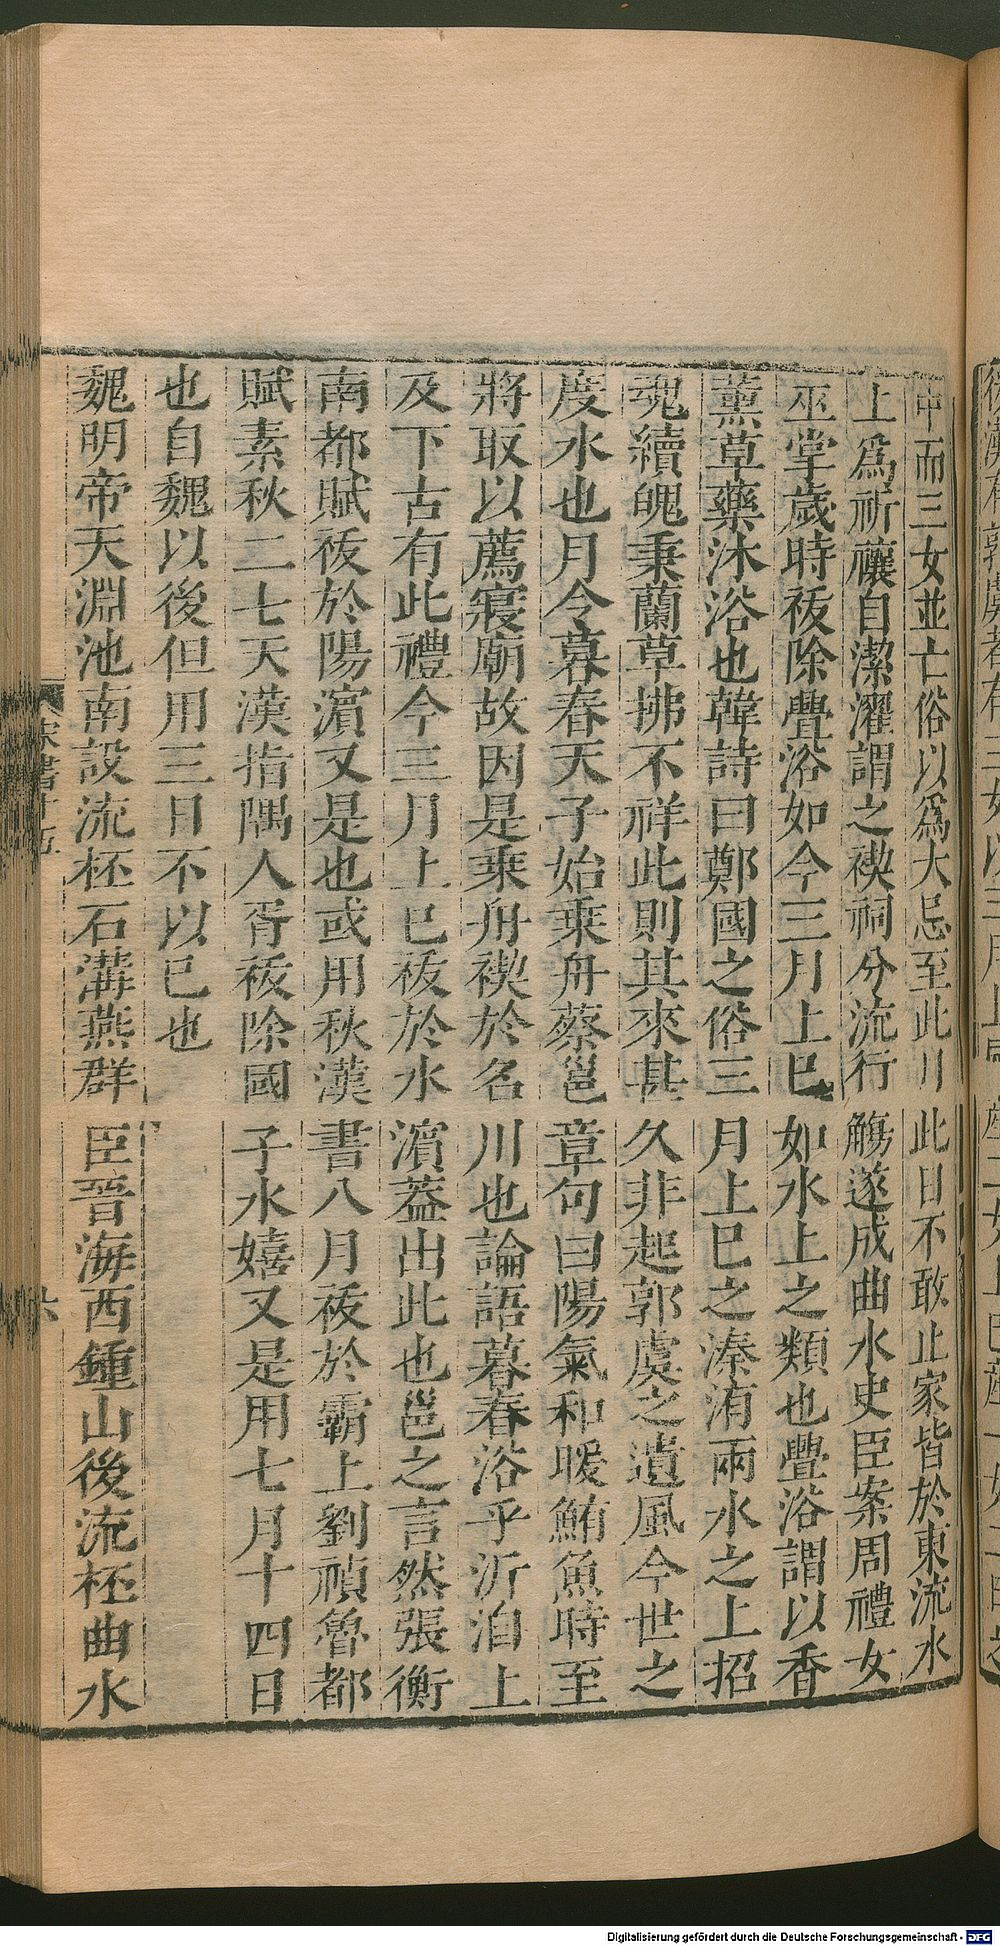 中而三女並亡俗以爲大忌至此月此日不敢止家皆於東流水
上爲祈禳自潔濯謂之禊祠分流行觴遂成曲水史臣案周禮女
巫掌歲時祓除釁浴如今三月上巳如水上之類也釁浴謂以香
薰草藥沐浴也韓詩曰鄭國之俗三月上巳之溱洧兩水之上招
魂續魄秉蘭草拂不祥此則其來甚久非起郭虞之遺風今世之
度水也月令暮春天子始乘舟蔡邕章句曰陽氣和暖鮪魚時至
將取以薦寢廟故因是乘舟禊於名川也論語暮春浴乎沂洎上
及下古有此禮今三月上巳祓於水濵葢出此也邕之言然張衡
南都賦祓於陽濵又是也或用秋漢書八月祓於霸上劉禎魯都
賦素秋二七天漢指隅人胥祓除國子水嬉又是用七月十四日
也自魏以後但用三日不以巳也
魏明帝天淵池南設流杯石溝燕群臣晉海西鍾山後流杯曲水
宋書十五
六
Digitalisierung gefördert durch die Deutsche Forschungsgemeinschaft - DFG